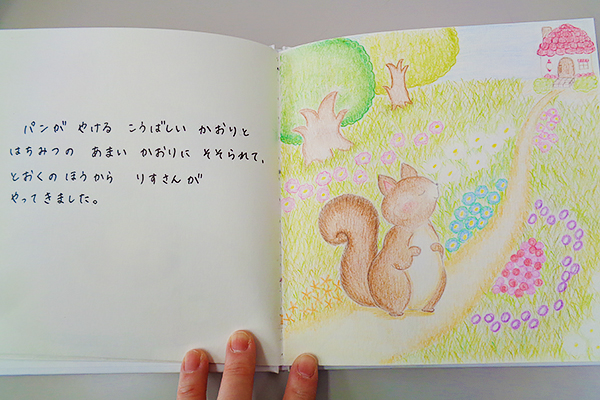 パンが やける こうばしい かおりと
はちみつの あまい かおりに そそられて、
とおくの ほうから りすさんが
やって きました。